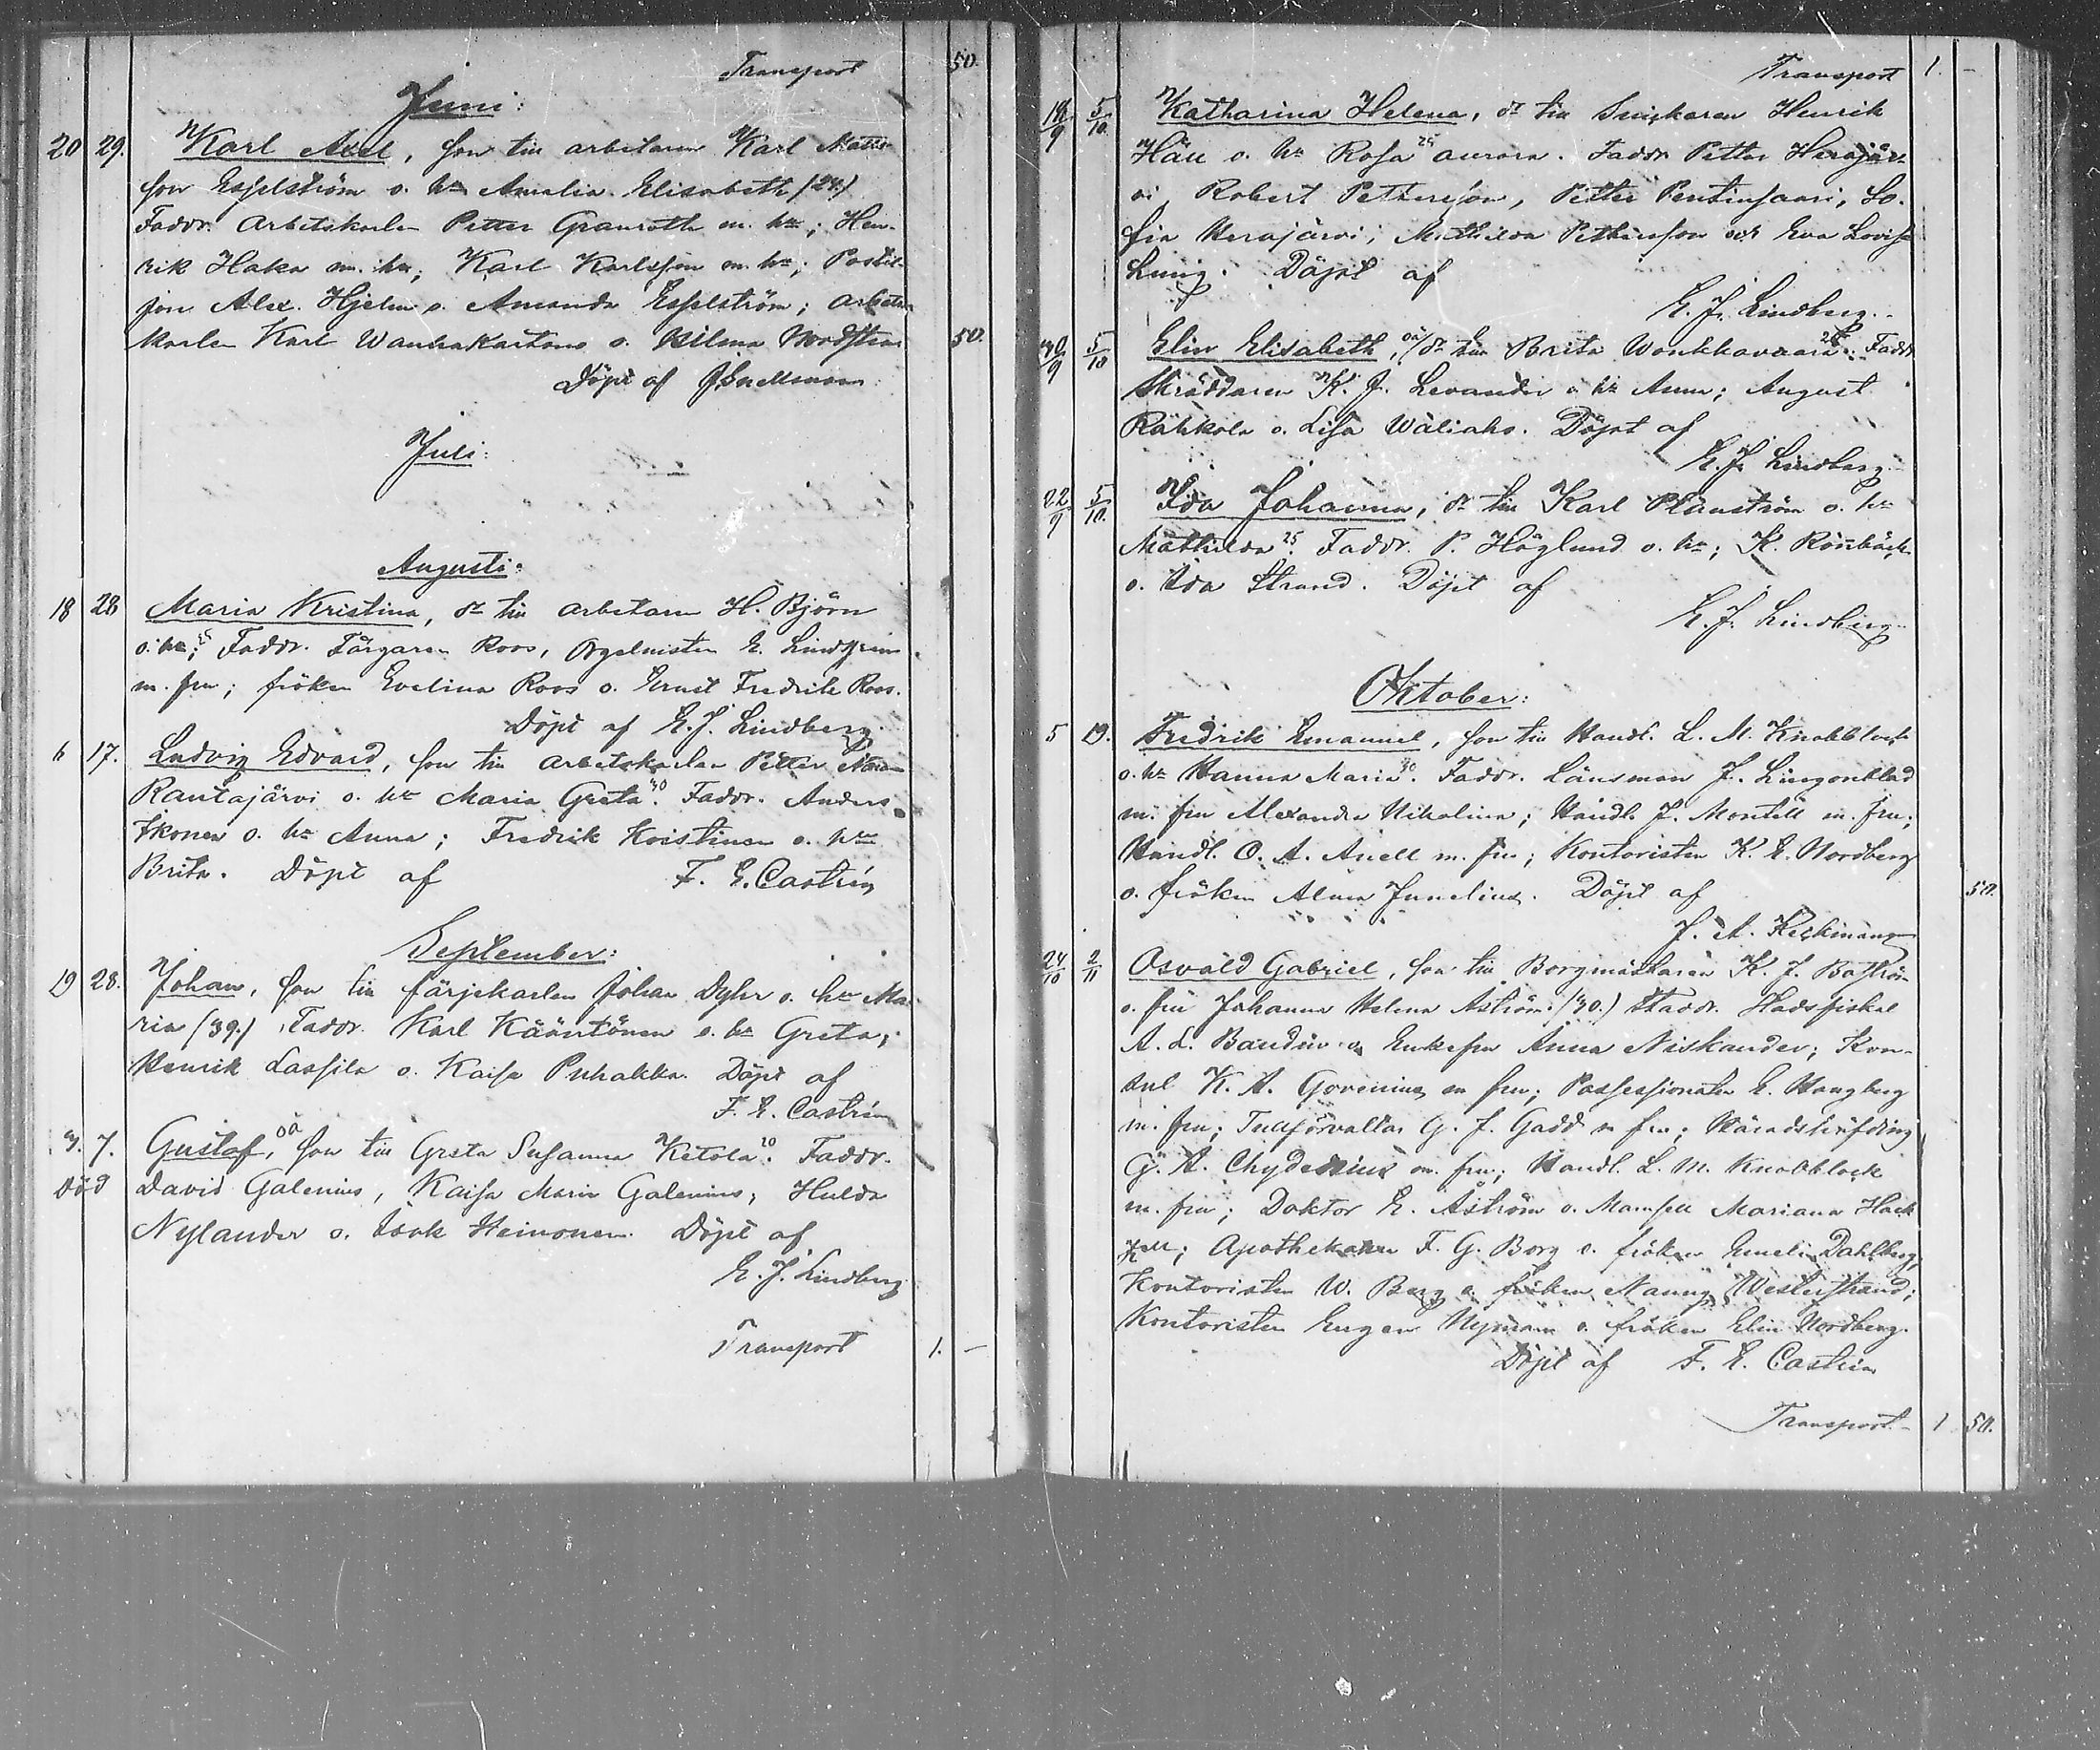 Transport 50.
Juni:
20 29. Karl Axel, son till arbetaren Karl Matts-
son Esselström o. hu Amalia Elisabeth (24.)
Faddr. Arbetskarlen Petter Granroth m. hu; Hen-
rik Haka m. hu; Karl Karlsson m. hu; Postil-
jon Alex. Hjelm o. Amanda Esselström; arbets-
karlen Karl o. Wilma Nordström 50.
Döpt af J. Snellman.
Juli:
Augusti:
18 28 Maria Kristina, dr till arbetaren H. Björn
o. hu; Faddr. Färgaren Roos, Orgelnisten E.
m. fru; fröken Evelina Roos o. Ernst Fredrik Roos.
Döpt af E. J. Lindberg.
6 17. Ludvig Edvard, son till arbetskarlen Petter
Rautajärvi o. hu Maria Greta 40. Faddr. Anders
Ikonen o. hu Anna; Fredrik Koistinen o. hu
Brita. Döpt af F. E. Castrén
September:
19 28. Johan, son till färjekarlen Johan Dyhr o. hu Ma-
ria (39.) Faddr. Karl Kääntönen o. hu Greta;
Henrik Lassila o. Kaisa Puhakka. Döpt af
F. E. Castrén
3. 7. Gustaf, oä son till Greta Susanna Ketola 20. Faddr.
Död David Galenius, Kaisa Maria Galenius, Hulda
Nylander o. Isak Heinonen. Döpt af
E. J. Lindberg.
Transport 1. –
Transport 1. –
18/9 5/10. Katharina Helena, dr till Snickaren Henrik
o. hu Rosa 25 Aurora. Faddr. Petter Herajär-
vi, Robert Pettersson, Petter Pentinsaari, So-
fia Herajärvi, Mathilda Pettersson och Eva Lovisa
Döpt af
E. J. Lindberg.
30/9 5/10 Elin Elisabeth, oä dr till Brita Wonkkavaara. Faddr.
Skräddaren K. J. Levander o. hu Anna; August
Rahkola o. Lisa Waliaho. Döpt af
E. J. Lindberg.
22/9 5/10. Ida Johanna, dr till Karl Planström o. hu
Mathilda 25. Faddr. P. Höglund o. hu; K. Rönnbäck
o. Ida Strand. Döpt af
E. J. Lindberg
Oktober:
5 19. Fredrik Emanuel, son till Handl. L. M. Knobblock
o. hu Hanna Maria 30. Faddr. Länsman J. Lingonblad
m. fru Alexandra Nikolina; Handl. J. Montell m. fru;
Handl. O. A. Anell m. fru; Kontoristen K. E. Nordberg
o. fröken Alma Junelius. Döpt af 50.
J. A. Heikman
24/10 2/11 Osvald Gabriel, son till Borgmästaren K. J. Boström
o. fru Johanna Helena Åström (30.) Faddr. Hofsfiskal
A. L. Baudin o. Enkefru Anna Niskander; Kon-
sul K. A. Govenius m fru; Possessionaten E. Haugberg
m. fru; Tullförvaltar G. J. Gadd m fru; Häradshöfding
G. A. Chydenius m. fru; Handl. L. M. Knobblock
m. fru; Doktor E. Åström o. Mamsell Mariana Hack-
zell; Apothekaren F. G. Borg o. fröken Emeli Dahlberg,
Kontoristen W. Berg o. fröken Nanny Westerstrand;
Kontoristen Eugen Nyman o. fröken Elin Nordberg.
Döpt af F. E. Castrén
Transport 1 50.